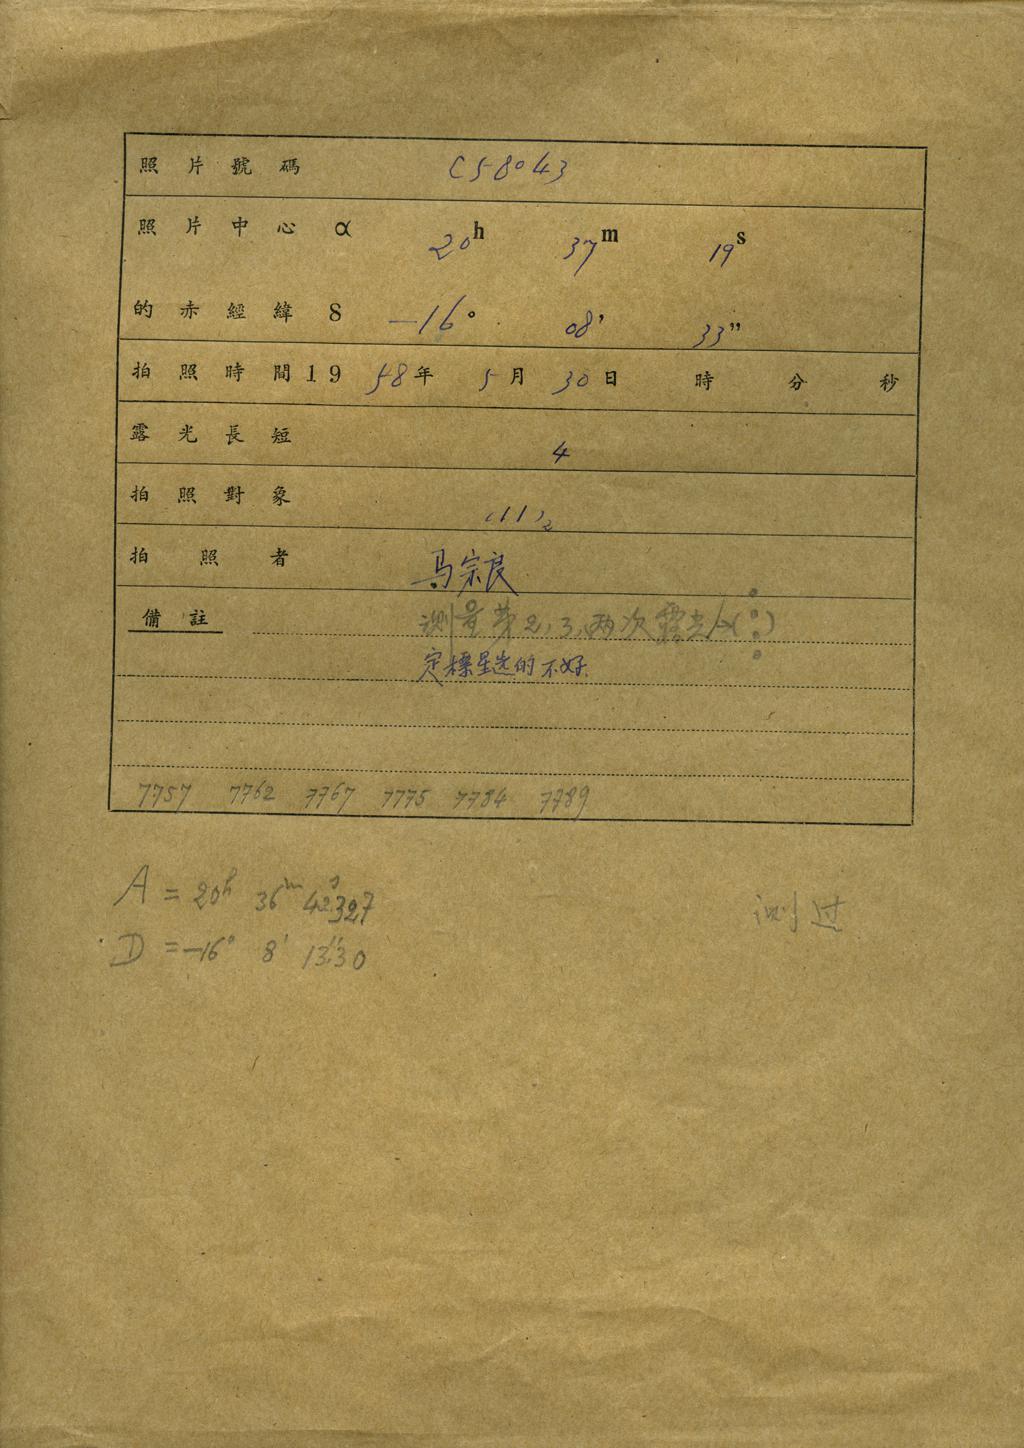 照片號碼 C58043
照片中心 α 20h 37m 19s
的赤經緯 δ -16° 08' 33"
拍照時間19 58年 5月 30日 時 分 秒
露光長短 4
拍照對象 (11)2
拍照者 马宗良
備註 测量第2,3,两次露光
定標星选的不好.
7757 7762 7767 7775 7784 7789
A = 20h 36m 42s.327
测过
D = -16° 8' 13".30